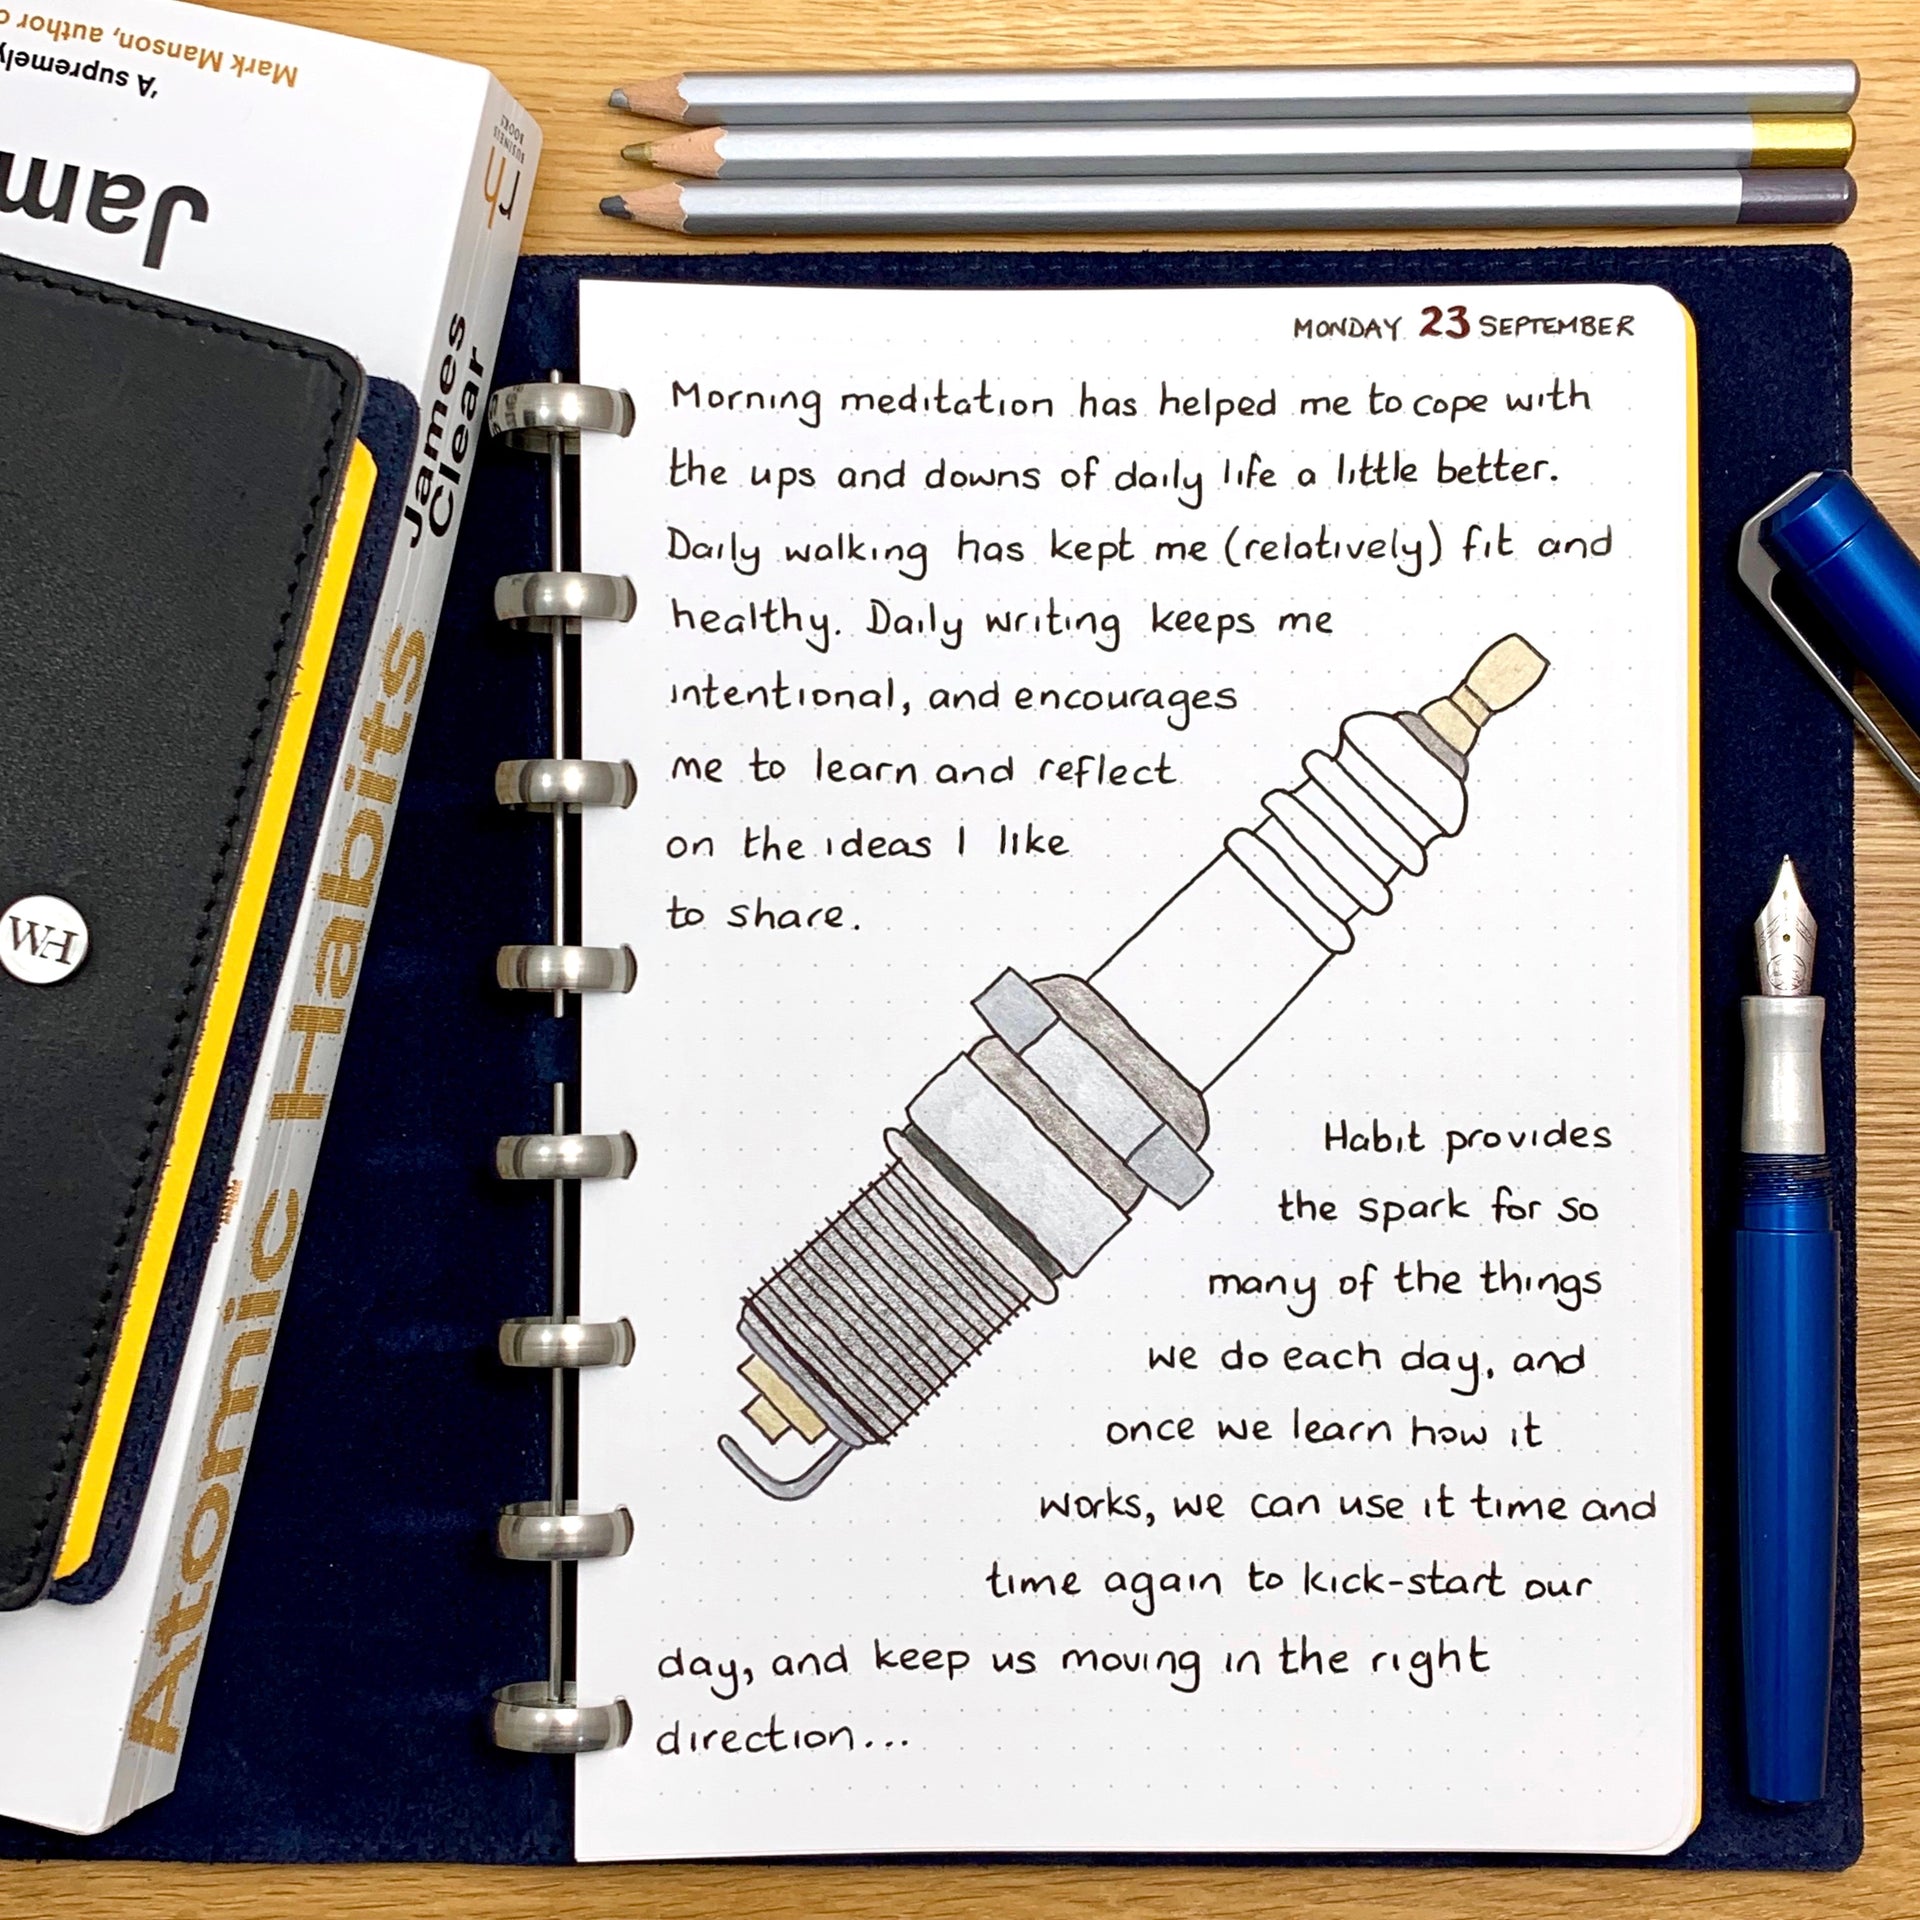 Mark Manson, author o
'A supremely
Jam
rh
BUSINESS
BOOKS
James
Clear
Atomic Habits
WH
MONDAY 23 SEPTEMBER
Morning meditation has helped me to cope with
the ups and downs of daily life a little better.
Daily walking has kept me (relatively) fit and
healthy. Daily writing keeps me
intentional, and encourages
me to learn and reflect
on the ideas I like
to share.
Habit provides
the spark for so
many of the things
we do each day, and
once we learn how it
works, we can use it time and
time again to kick-start our
day, and keep us moving in the right
direction...